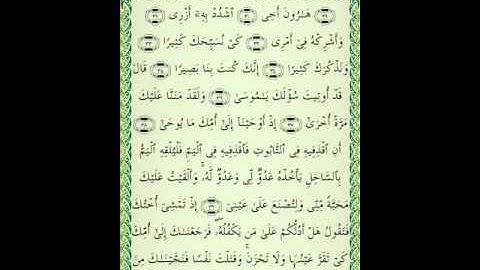 ﴿٢٩﴾ هَـٰرُونَ أَخِى ﴿٣٠﴾ ٱشْدُدْ بِهِۦٓ أَزْرِى ﴿٣١﴾
وَأَشْرِكْهُ فِىٓ أَمْرِى ﴿٣٢﴾ كَىْ نُسَبِّحَكَ كَثِيرًا ﴿٣٣﴾
وَنَذْكُرَكَ كَثِيرًا ﴿٣٤﴾ إِنَّكَ كُنتَ بِنَا بَصِيرًا ﴿٣٥﴾ قَالَ
قَدْ أُوتِيتَ سُؤْلَكَ يَـٰمُوسَىٰ ﴿٣٦﴾ وَلَقَدْ مَنَنَّا عَلَيْكَ
مَرَّةً أُخْرَىٰٓ ﴿٣٧﴾ إِذْ أَوْحَيْنَآ إِلَىٰٓ أُمِّكَ مَا يُوحَىٰٓ ﴿٣٨﴾
أَنِ ٱقْذِفِيهِ فِى ٱلتَّابُوتِ فَٱقْذِفِيهِ فِى ٱلْيَمِّ فَلْيُلْقِهِ ٱلْيَمُّ
بِٱلسَّاحِلِ يَأْخُذْهُ عَدُوٌّ لِّى وَعَدُوٌّ لَّهُۥ ۚ وَأَلْقَيْتُ عَلَيْكَ
مَحَبَّةً مِّنِّى وَلِتُصْنَعَ عَلَىٰ عَيْنِىٓ ﴿٣٩﴾ إِذْ تَمْشِىٓ أُخْتُكَ
فَتَقُولُ هَلْ أَدُلُّكُمْ عَلَىٰ مَن يَكْفُلُهُۥ ۖ فَرَجَعْنَـٰكَ إِلَىٰٓ أُمِّكَ
كَىْ تَقَرَّ عَيْنُهَا وَلَا تَحْزَنَ ۚ وَقَتَلْتَ نَفْسًا فَنَجَّيْنَـٰكَ مِنَ